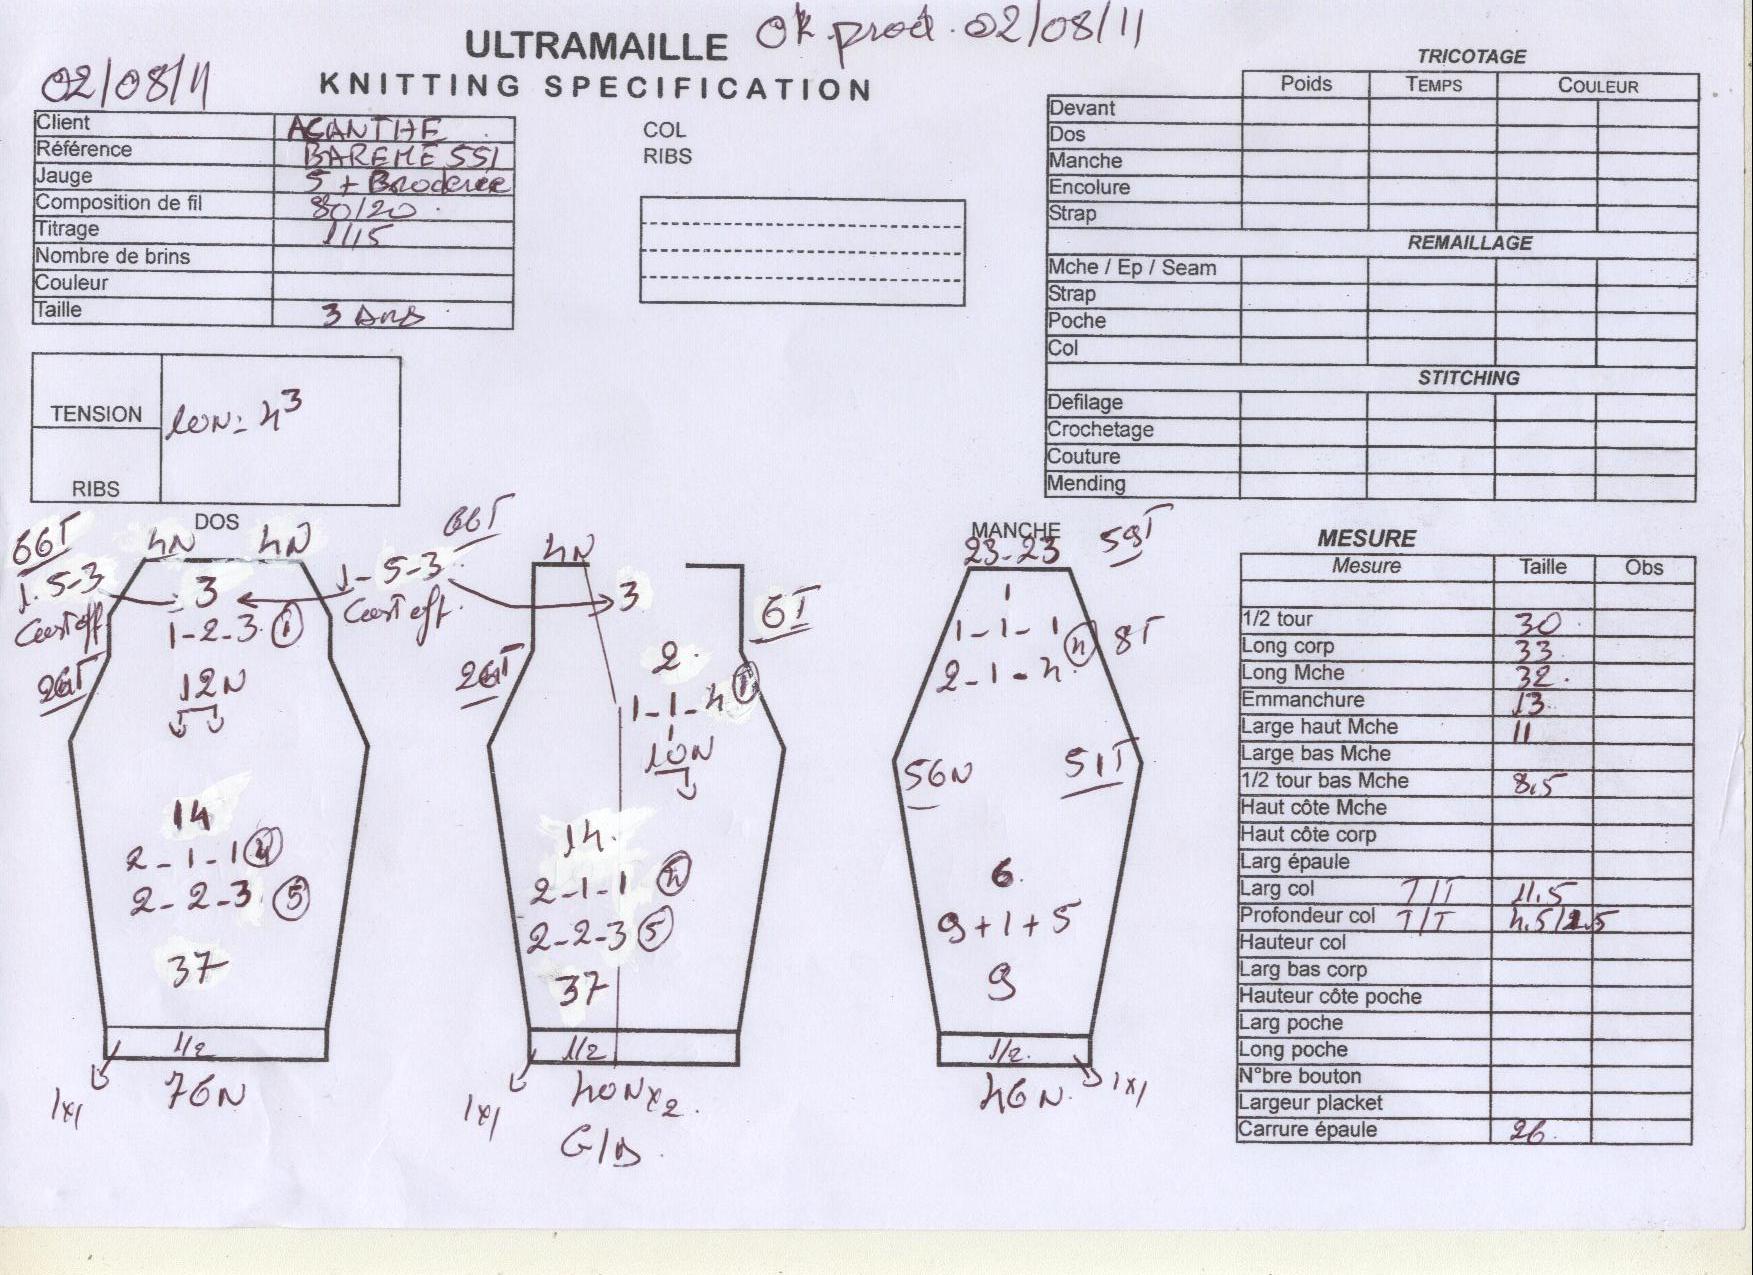 Ok prod. 02/08/11
ULTRAMAILLE
KNITTING SPECIFICATION
02/08/11
Client ACANTHE
Référence BAREME 551
Jauge 5 + Broderie
Composition de fil 80/20
Titrage 1/15
Nombre de brins
Couleur
Taille 3 Ans
COL
RIBS
TRICOTAGE
Poids TEMPS COULEUR
Devant
Dos
Manche
Encolure
Strap
REMAILLAGE
Mche / Ep / Seam
Strap
Poche
Col
STITCHING
Defilage
Crochetage
Couture
Mending
TENSION
RIBS
DOS
66T
4N 4N
1-5-3
Cast off
3
1-5-3
Cast off
1-2-3 1
26T
12N
14
2-1-1 4
2-2-3 5
37
1/2
1x1
76N
66T
4N
3
6T
26T
2
1-1-4 1
10N
14
2-1-1 4
2-2-3 5
37
1/2
1x1
40Nx2
G/D
MANCHE
23-23
59T
1
1-1-1
2-1-4 4
8T
56N
51T
6
9+1+5
9
1/2
46N
1x1
MESURE
Mesure Taille Obs
1/2 tour 30
Long corp 33
Long Mche 32
Emmanchure 13
Large haut Mche 11
Large bas Mche
1/2 tour bas Mche 8,5
Haut côte Mche
Haut côte corp
Larg épaule
Larg col T/T 11.5
Profondeur col T/T 4.5/2.5
Hauteur col
Larg bas corp
Hauteur côte poche
Larg poche
Long poche
N°bre bouton
Largeur placket
Carrure épaule 26